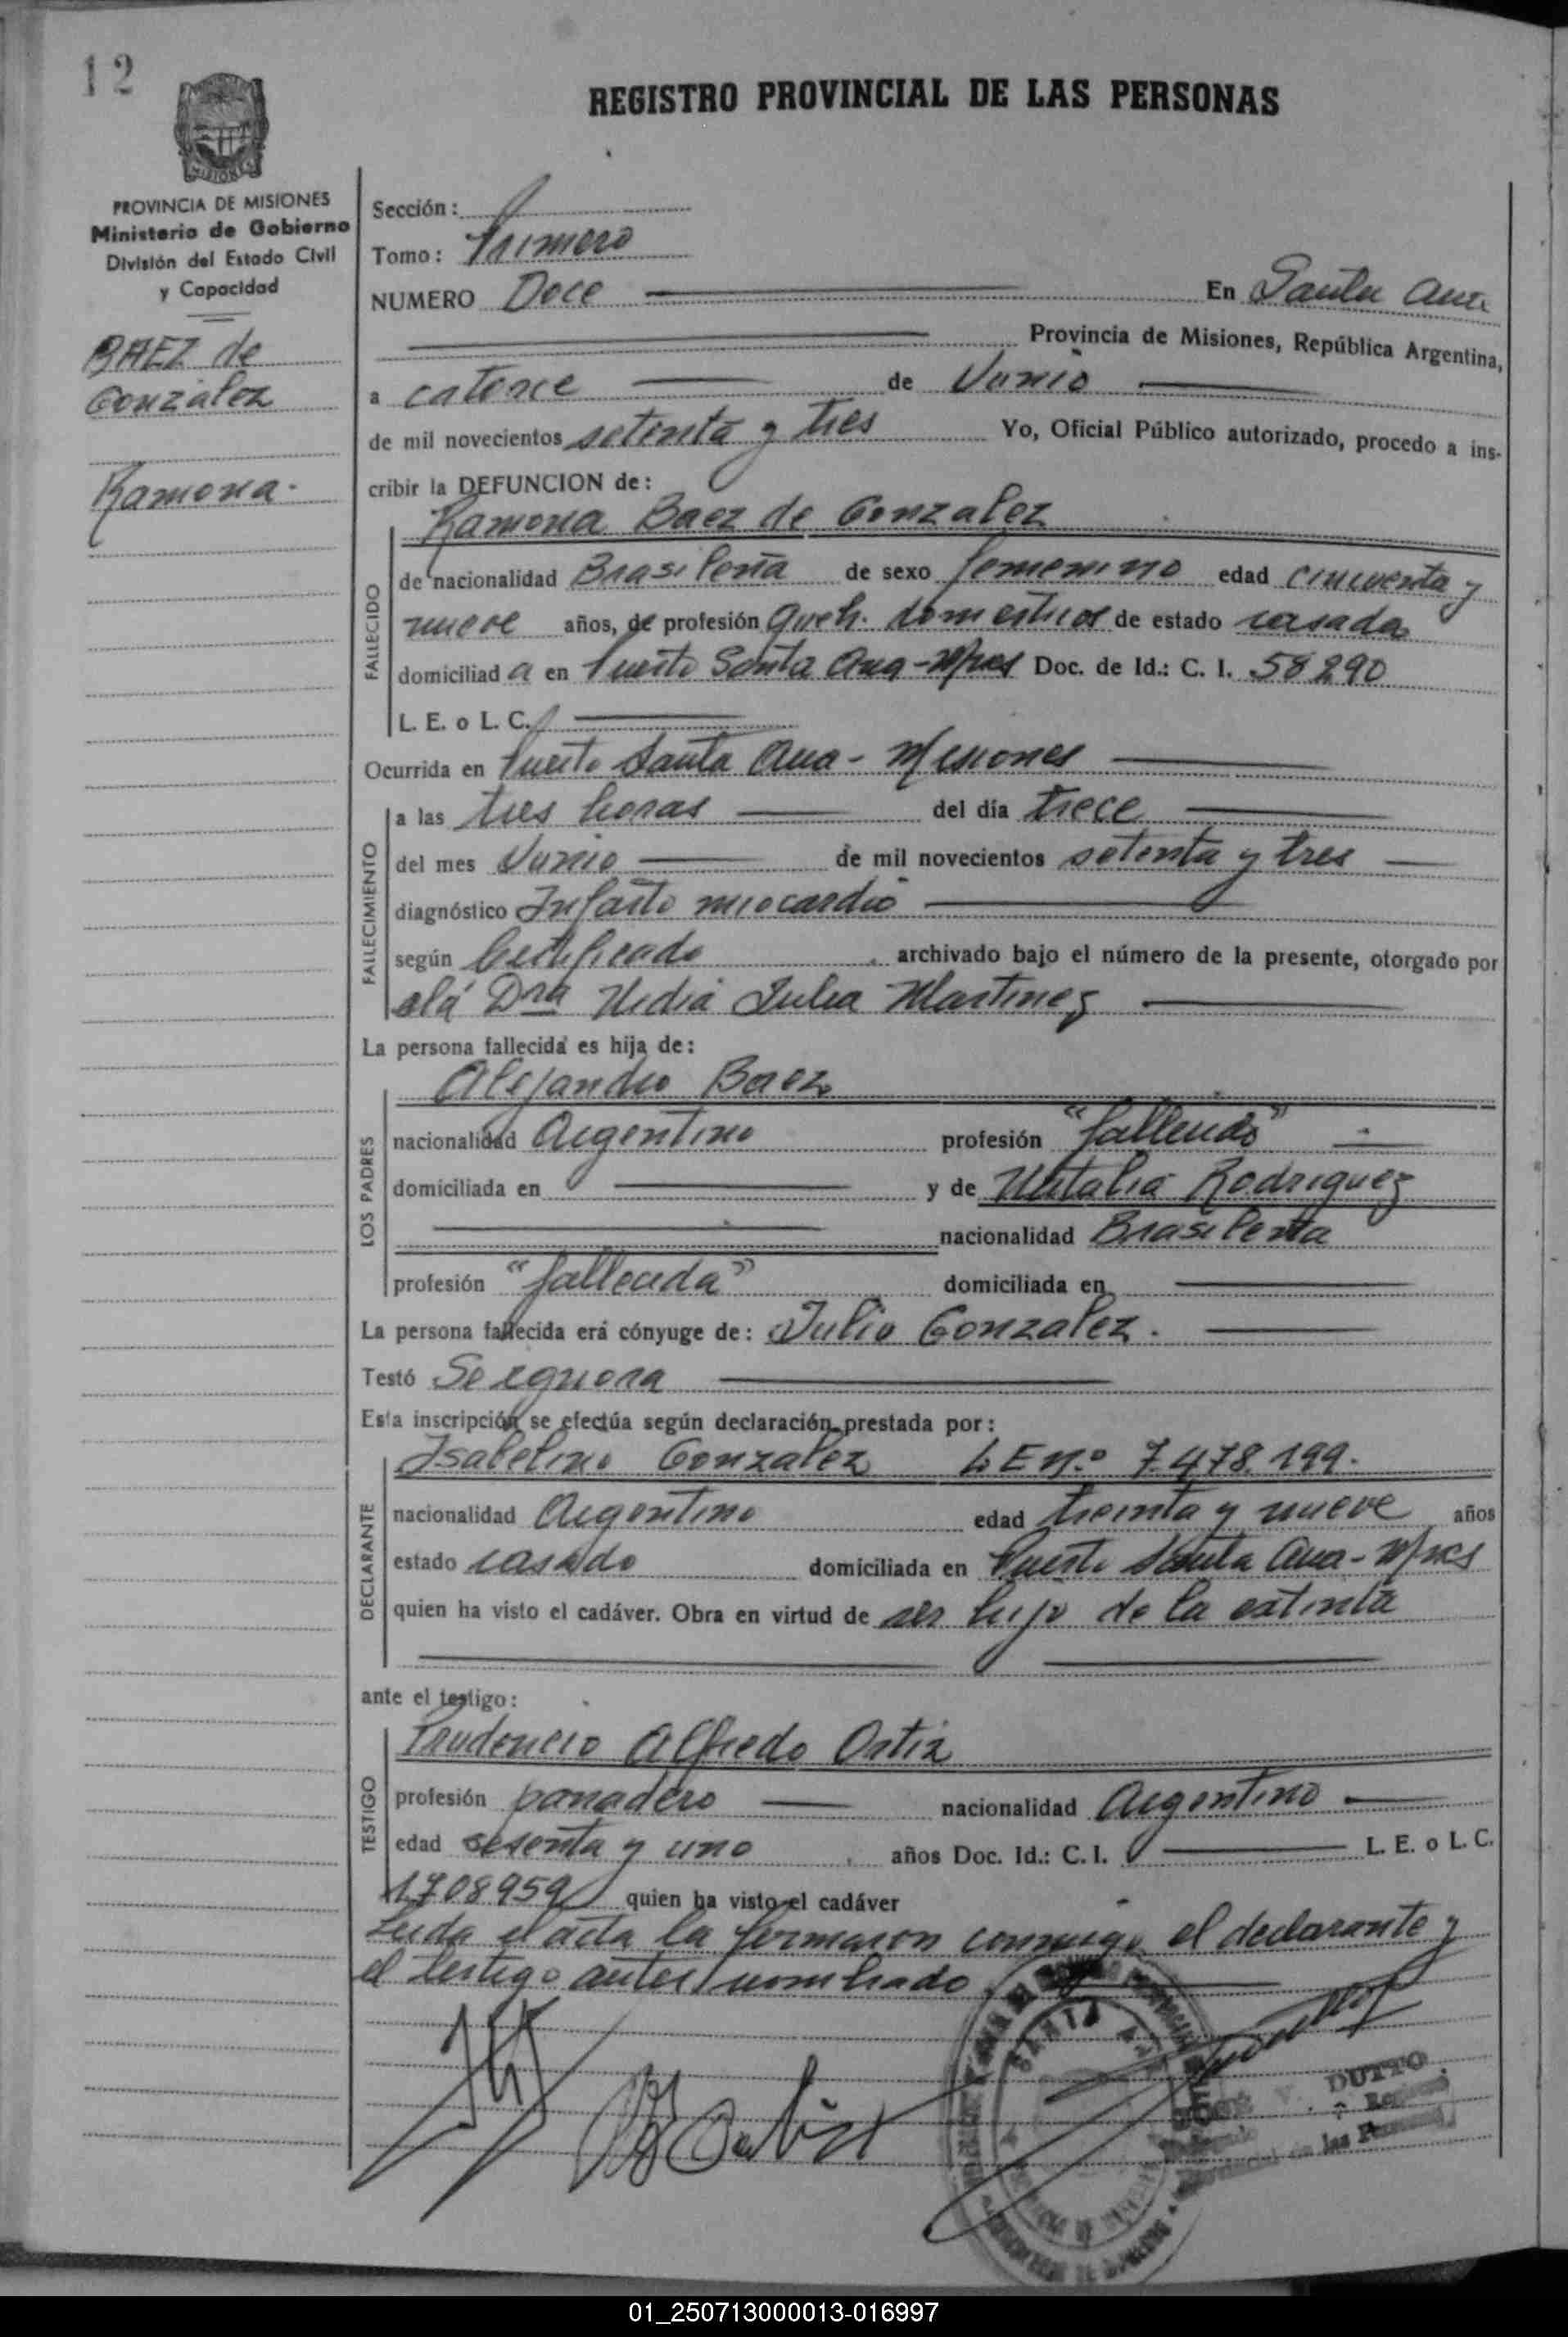 12
REGISTRO PROVINCIAL DE LAS PERSONAS
MISIONES
PROVINCIA DE MISIONES
Ministerio de Gobierno
División del Estado Civil
y Capacidad
BAEZ de
Gonzalez
Ramona.
Sección:
Tomo: Primero
NUMERO Doce En Santa Ana
Provincia de Misiones, República Argentina,
a catorce de Junio
de mil novecientos setenta y tres Yo, Oficial Público autorizado, procedo a ins-
cribir la DEFUNCION de:
Ramona Baez de Gonzalez
FALLECIDO
de nacionalidad Brasileña de sexo femenino edad cincuenta y
nueve años, de profesión queh. domesticos de estado casada
domiciliad a en Puerto Santa Ana-Mnes Doc. de Id.: C. I. 58290
L. E. o L. C.
Ocurrida en Puerto Santa Ana - Misiones
FALLECIMIENTO
a las tres horas del día trece
del mes Junio de mil novecientos setenta y tres
diagnóstico Infarto miocardio
según Certificado, archivado bajo el número de la presente, otorgado por
Dra Nidia Julia Martinez
La persona fallecida es hija de:
Alejandro Baez
LOS PADRES
nacionalidad Argentino profesión "fallecido"
domiciliada en y de Natalia Rodriguez
nacionalidad Brasileña
profesión "fallecida" domiciliada en
La persona fallecida erá cónyuge de: Julio Gonzalez.
Testó Se ignora
Esta inscripción se efectúa según declaración prestada por:
Isabelino Gonzalez L E N.º 7.478.199.
DECLARANTE
nacionalidad Argentino edad treinta y nueve años
estado casado domiciliada en Puerto Santa Ana-Mnes
quien ha visto el cadáver. Obra en virtud de ser hijo de la extinta
ante el testigo:
Prudencio Alfredo Ortiz
TESTIGO
profesión panadero nacionalidad Argentino
edad sesenta y uno años Doc. Id.: C. I. L. E. o L. C.
1708959 quien ha visto el cadáver
Leida el acta la firmaron conmigo el declarante y
el testigo antes nombrado
SANTA
V. DUTTO
de las Personas
01_250713000013-016997